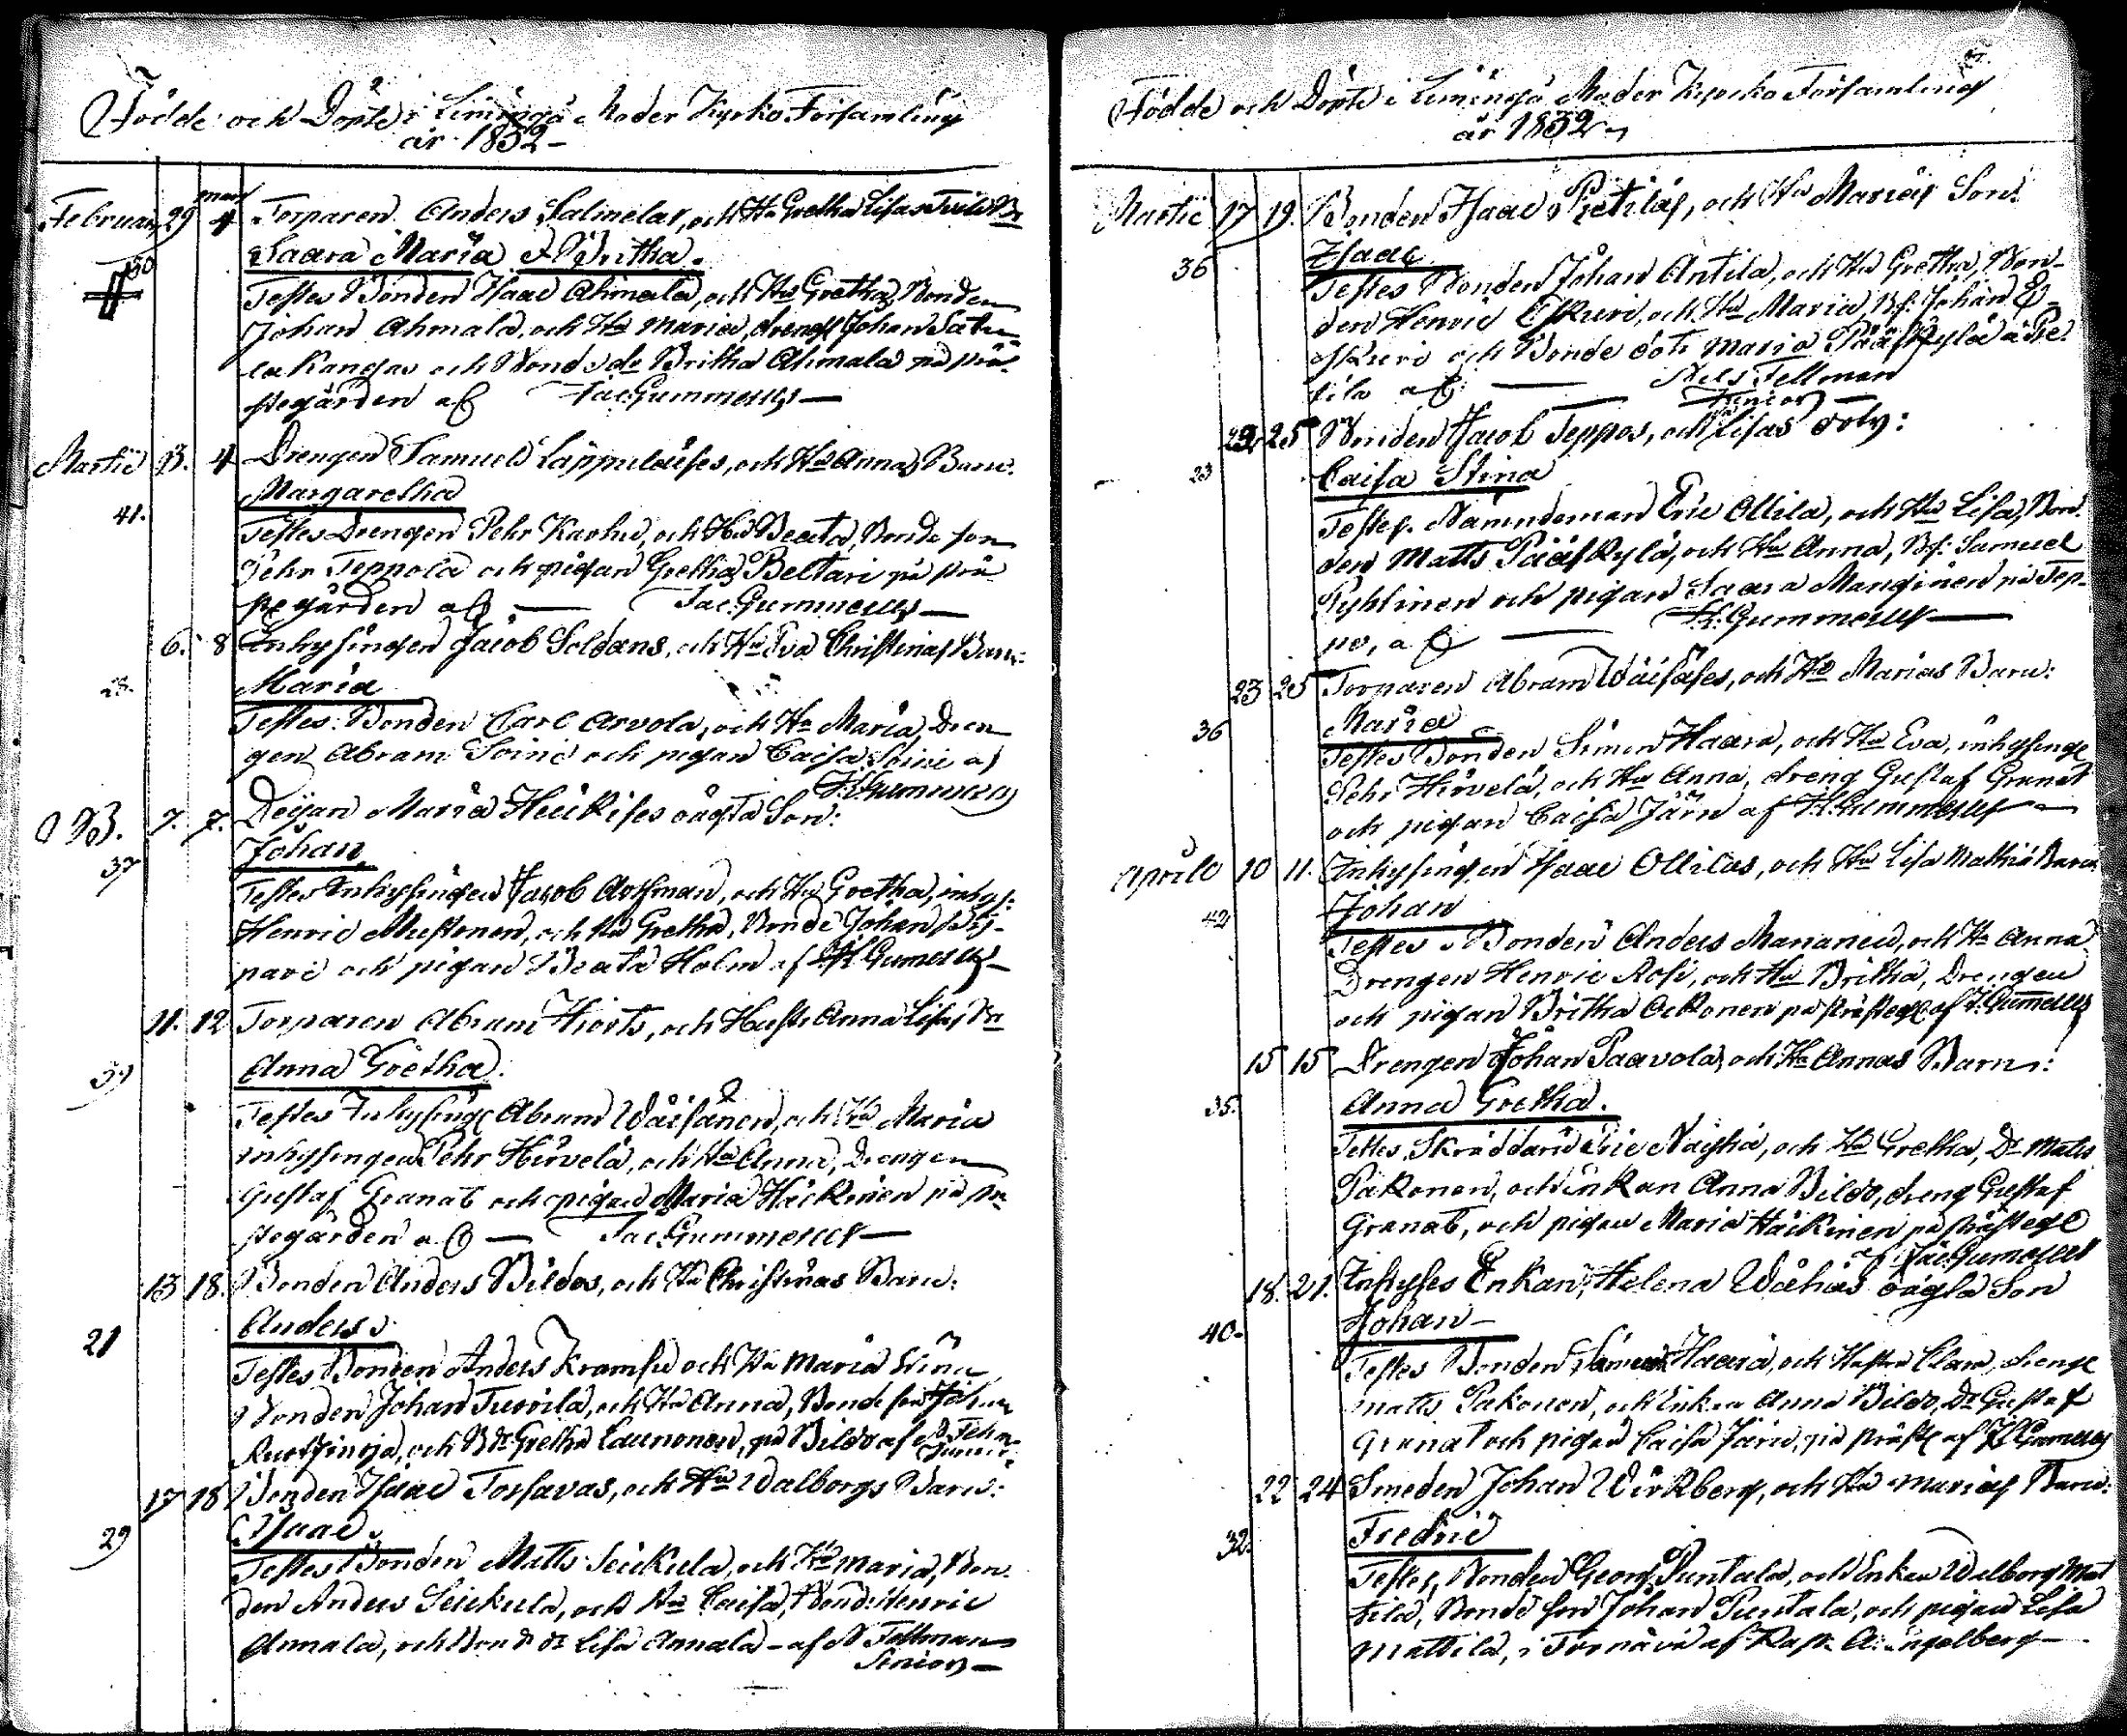 Födde och Döpte i Limingå Moder Kyrko Församling
år 1832
mart
Februari 29 4 Torparen Anders Salmelas, och Hu Gretha Lisas Tvill. Bn
Saara Maria & Britha.
30
Testes Bonden Isaac Ahmala, och Hu Gretha, Bonden
Johan Ahmala, och Hu Maria, dreng Johan Satu
la Kangas och Bonde dr Britha Ahmala på prä
stegården af Jac: Gummerus
Martii 3. 4 Drengen Samuel Läppeläises, och Hu Annas Barn.
Margaretha
41.
Testes Drengen Pehr Karhu, och Hu Beata, Bonde son
Pehr Teppola och pigan Gretha Beltari på prä
stegården af Jac: Gummerus
6. 8 Inhysingen Jacob Soldans, och Hu Eva Christinas Barn:
28. Maria
Testes: Bonden Carl Arvola, och Hu Maria, Dren
gen Abram Soini och pigan Caisa Soini af
J. Gummerus
OB. 7. 7. Deijan Maria Heikises oägta Son:
Johan
37
Testes Inhysingen Jacob Artman, och Hu Gretha, inhys:
Henric Mustonen, och Hu Gretha, Bonde Johan
pari och pigan Beata Holm af J. Gumerus
11. 12 Torparen Abram Hiorts, och Hustr Anna Lisas Bn
Anna Gretha.
39
Testes Inhysing Abram Wäisänen, och Hu Maria
inhysingen Pehr Hirvelä, och Hu Anna, Drengen
Gustaf Granat och pigan Maria Häckinen på prä
stegården af Jac: Gummerus
13 18. Bonden Anders Bildos, och Hu Christinas Barn:
Anders
21
Testes Bonden Anders Kramsu och Hu Maria Stina
Bonden Johan Turvila, och Hu Anna, Bonde son Johan
och B dr Gretha Launonen, på Bildo af
17 18 Bonden Isaac Torfavas, och Hu Walborgs Barn:
Isaac.
29
Testes Bonden Matts Seickula, och Hu Maria, Bon
den Anders Seickula, och Hu Caisa, Bond: Henric
Annala, och Bonde dr Lisa Annala - af N Fellman
Senior
Födde och Döpte i Limingå Moder Kyrko Församling
år 1832
Martii 17 19. Bonden Isaac Pietiläs, och Hu Marias Son:
Isaac
36
Testes Bonden Johan Antila, och Hu Gretha, Bon-
den Henric Eskuri, och Hu Maria, Bs: Johan E-
skuri och Bonde dotr Maria Pääskylä å Pie
tila af Nils Fellman
Senior
22 25 Bonden Jacob Teppos, och Lisas dotr:
23 Caisa Stina
Testes. Nämndeman Eric Ollila, och Hu Lisa, Bon
den Matts Pääskylä, och Hu Anna, Bs: Samuel
Pyhtinen och pigan Saara Manginen på Tep-
po, af J: Gummerus
23 25 Torparen Abram Wäisäses, och Hu Marias Barn:
36 Maria
Testes Bonden Simon Haara, och Hu Eva, inhysinge
Pehr Hirvelä, och Hu Anna, dreng Gustaf Granat
och pigan Caisa Järn af J. Gummerus
Aprill 10 11. Inhysingen Isaac Ollilas, och Hu Lisa Barn
42 Johan
Testes Bonden Anders Mananen, och Hu Anna
Drengen Henric Rosi, och Hu Britha, Drengen
och pigan Britha Ockonen på prästeg af J: Gummerus
15 15 Drengen Johan Paavolas, och Hu Annas Barn:
35. Anna Gretha.
Testes Skräddaren Eric Näyhä, och Hu Gretha, Dr Matts
Pakonen, och Enkan Anna Bildo, dreng Gustaf
Granat, och pigan Maria Häikinen på prästeg
af Jac: Gumerus
18. 21. Inhyses Enkan, Helena Wähäs oägta Son
40. Johan
Testes Bonden Simon Haara, och Hustru Clara, drenge
Matts Pakonen, och Enkan Anna Bildo, Dr Gustaf
Granat och pigan Caisa Järn, på präst: af J: Gumerus
22 24 Smeden Johan Wirkberg, och Hu Marias Barn:
32. Fredric
Testes, Bonden Georg Puntala, och Enkan Walborg Mat
tila, Bonde son Johan Puntala, och pigan Lisa
Mattila, i Tornävä af Kap: A: Engelberg